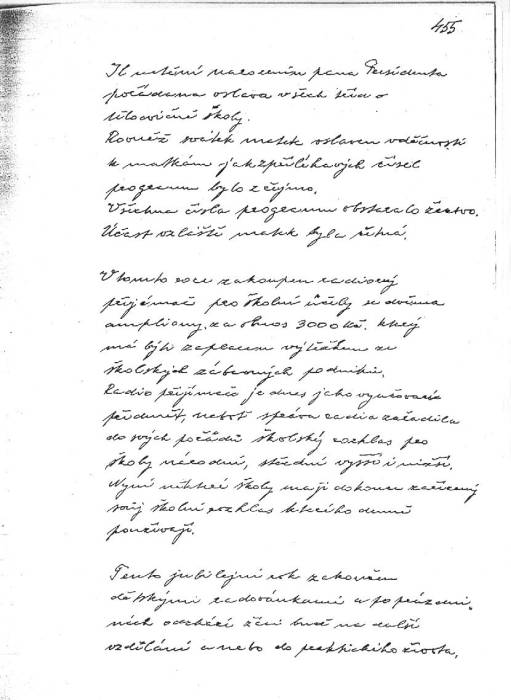 455
narozenin pana Presidenta
pořádána oslava všech tříd v
tělocvičně školy.
Rovněž svátek matek oslaven vděčností
k matkám jak z přiléhavých čísel
programu bylo zřejmo.
Všechna čísla programu obstaralo žactvo.
Účast zvláště matek byla četná.
V tomto roce zakoupen radiový
přijímač pro školní účely se dvěma
ampliony, za obnos 3000 Kč. který
má býti zaplacen výtěžkem ze
školských zábavných podniků.
Radio přijímač je dnes jako vyučovací
předmět, neboť správa radia zařadila
do svých pořadů školský rozhlas pro
školy národní, střední vyšší i nižší.
Nyní některé školy mají dokonce zařízený
svůj školní rozhlas kterého denně
používají.
Tento jubilejní rok zakončen
dětskými radovánkami a po prázdni-
nách odchází žáci buď na další
vzdělání a nebo do praktického života.